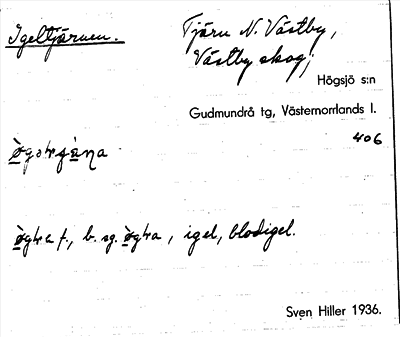 Igeltjärnen.
Tjärn N. Västby,
Västby skog;
Högsjö s:n
Gudmundrå tg, Västernorrlands l.
406
f., b. sg. , igel, blodigel.
Sven Hiller 1936.